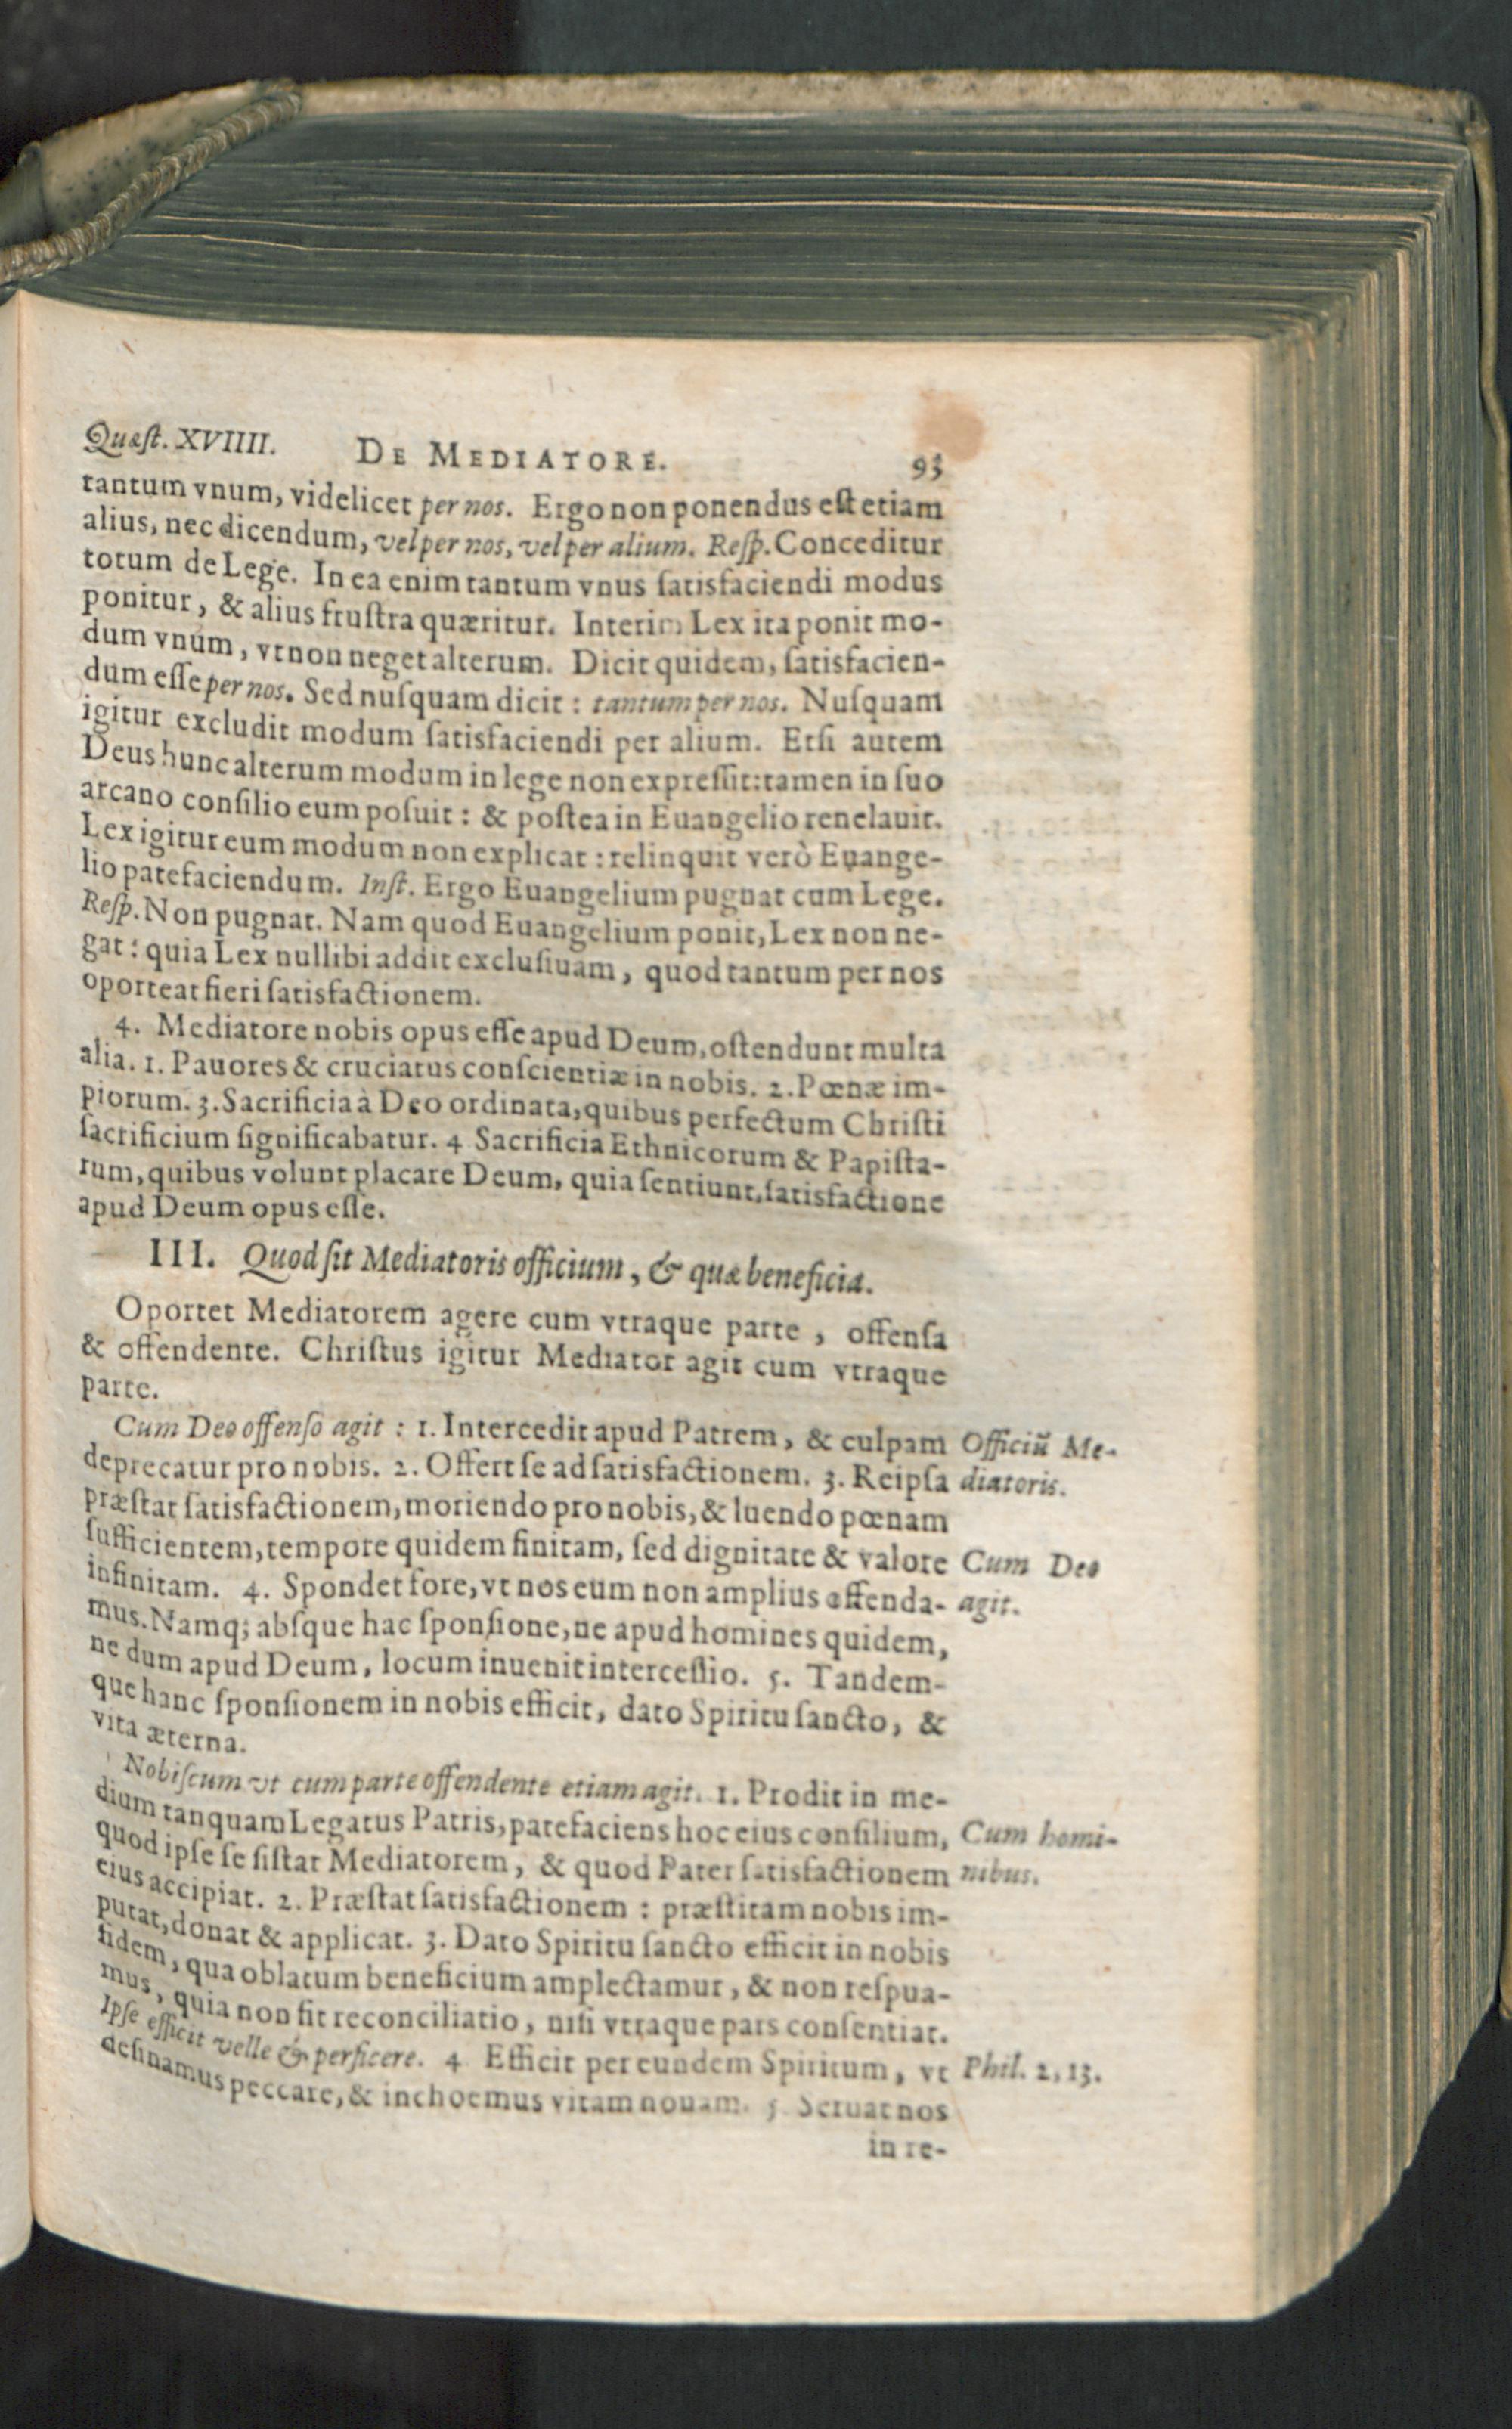 Quæſt. XVIIII. DE MEDIATORE. 93
tantum vnum, videlicet per nos. Ergo non ponendus eſt etiam
alius, nec dicendum, vel per nos, vel per alium. Reſp. Conceditur
totum de Lege. In ea enim tantum vnus ſatisfaciendi modus
ponitur, & alius fruſtra quæritur. Interim Lex ita ponit mo-
dum vnum, vt non neget alterum. Dicit quidem, ſatisfacien-
dum eſſe per nos. Sed nuſquam dicit : tantum per nos. Nuſquam
igitur excludit modum ſatisfaciendi per alium. Etſi autem
Deus hunc alterum modum in lege non expreſſit: tamen in ſuo
arcano conſilio eum poſuit : & poſtea in Euangelio renelauit.
Lex igitur eum modum non explicat : relinquit verò Euange-
lio patefaciendum. Inſt. Ergo Euangelium pugnat cum Lege.
Reſp. Non pugnat. Nam quod Euangelium ponit, Lex non ne-
gat : quia Lex nullibi addit excluſiuam, quod tantum per nos
oporteat fieri ſatisfactionem.
4. Mediatore nobis opus eſſe apud Deum, oſtendunt multa
alia. 1. Pauores & cruciatus conſcientiæ in nobis. 2. Pœnæ im-
piorum. 3. Sacrificia à Deo ordinata, quibus perfectum Chriſti
ſacrificium ſignificabatur. 4 Sacrificia Ethnicorum & Papiſta-
rum, quibus volunt placare Deum, quia ſentiunt, ſatisfactione
apud Deum opus eſſe.
III. Quod ſit Mediatoris officium, & quæ beneficia.
Oportet Mediatorem agere cum vtraque parte, offenſa
& offendente. Chriſtus igitur Mediator agit cum vtraque
parte.
Cum Deo offenſo agit : 1. Intercedit apud Patrem, & culpam Officiũ Me-
deprecatur pro nobis. 2. Offert ſe ad ſatisfactionem. 3. Reipſa diatoris.
præſtat ſatisfactionem, moriendo pro nobis, & luendo pœnam
ſufficientem, tempore quidem finitam, ſed dignitate & valore Cum Deo
infinitam. 4. Spondet fore, vt nos eum non amplius offenda- agit.
mus. Namq; abſque hac ſponſione, ne apud homines quidem,
ne dum apud Deum, locum inuenit interceſſio. 5. Tandem-
que hanc ſponſionem in nobis efficit, dato Spiritu ſancto, &
vita æterna.
Nobiſcum vt cum parte offendente etiam agit. 1. Prodit in me-
dium tanquam Legatus Patris, patefaciens hoc eius conſilium, Cum homi-
quod ipſe ſe ſiſtat Mediatorem, & quod Pater ſatisfactionem nibus.
eius accipiat. 2. Præſtat ſatisfactionem : præſtitam nobis im-
putat, donat & applicat. 3. Dato Spiritu ſancto efficit in nobis
fidem, qua oblatum beneficium amplectamur, & non reſpua-
mus, quia non fit reconciliatio, niſi vtraque pars conſentiat.
Ipſe efficit velle & perficere. 4 Efficit per eundem Spiritum, vt Phil. 2, 13.
deſinamus peccare, & inchoemus vitam nouam. 5 Seruat nos
in re-